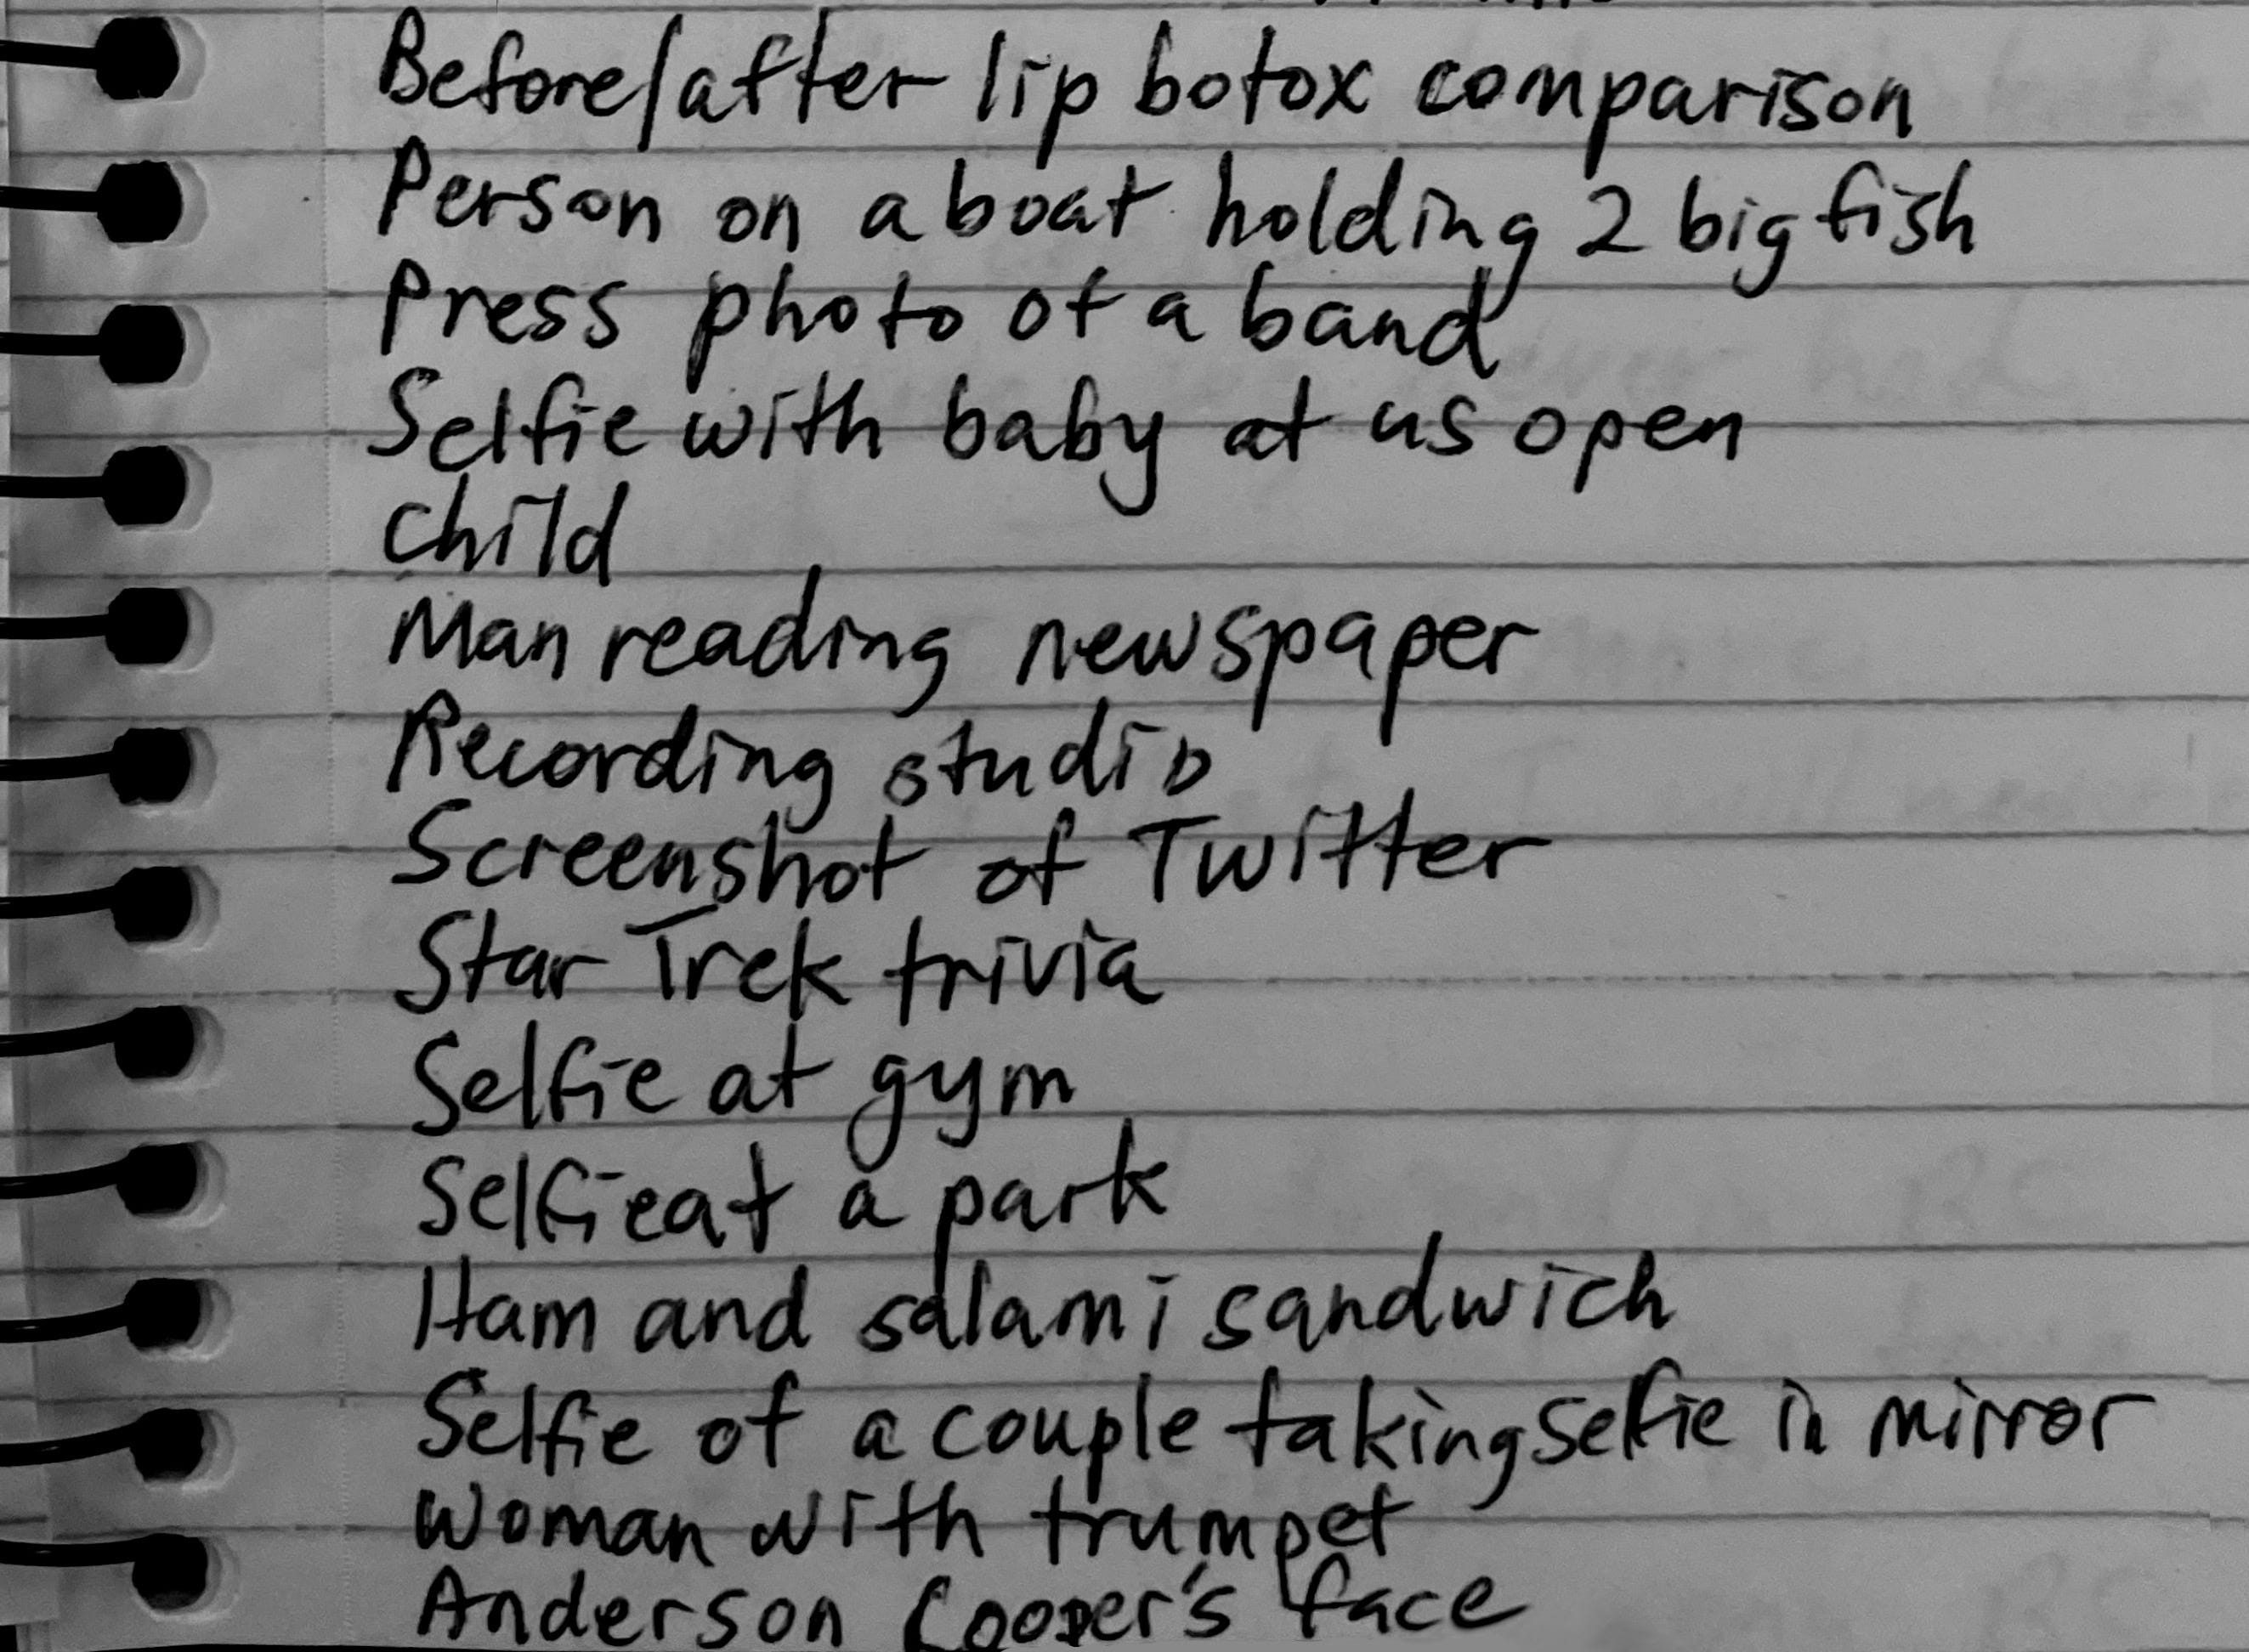 Before/after lip botox comparison
Person on a boat holding 2 big fish
Press photo of a band
Selfie with baby at us open
Child
Man reading newspaper
Recording studio
Screenshot of Twitter
Star Trek trivia
Selfie at gym
Selfie at a park
Ham and salami sandwich
Selfie of a couple taking selfie in mirror
Woman with trumpet
Anderson Cooper's face